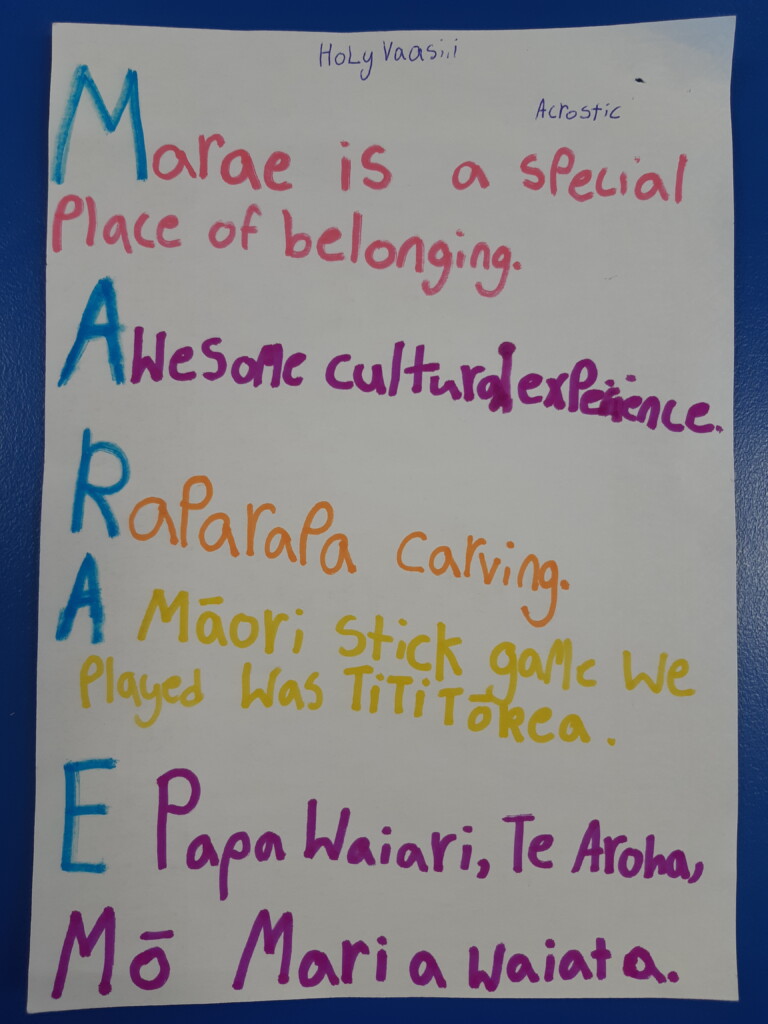 Holy Vaasiii
Acrostic
Marae is a special
Place of belonging.
Awesome cultural experience.
Raparapa carving.
A Māori stick game we
played was TiTi Tōrea.
E Papa Waiari, Te Aroha,
Mō Maria waiata.